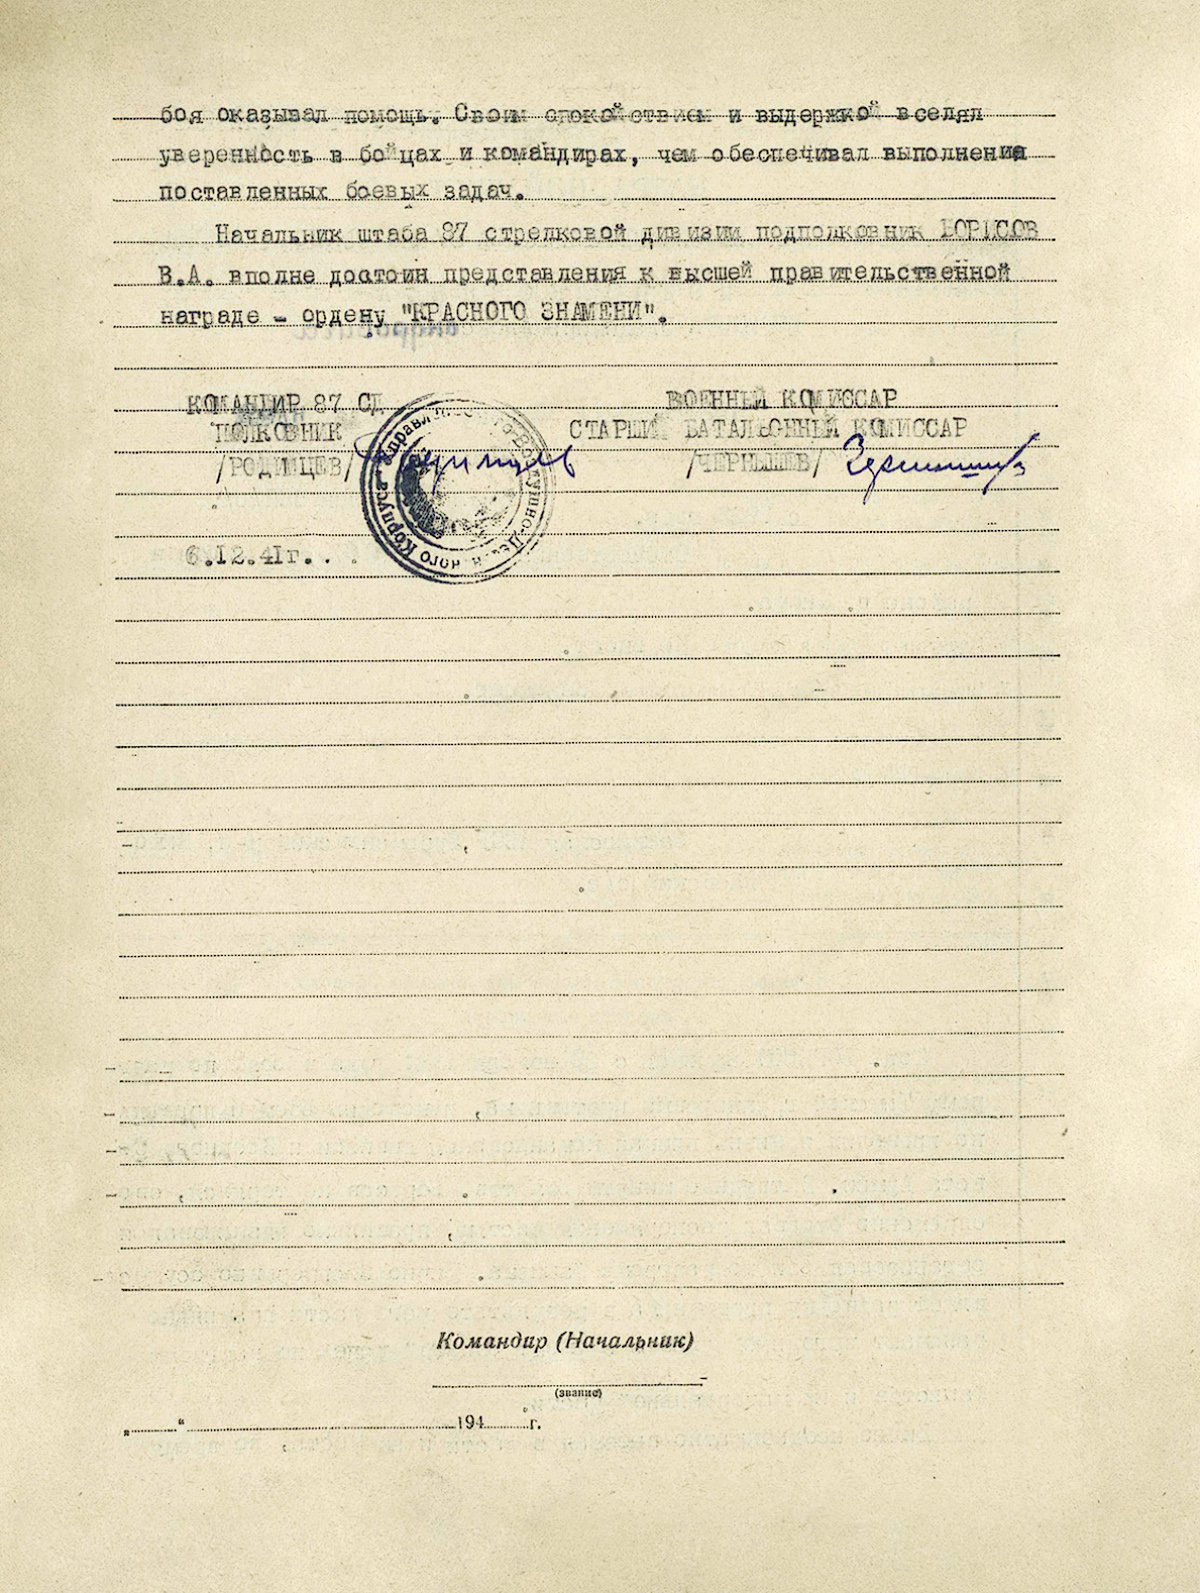 боя оказывал помощь. Своим спокойствием и выдержкой вселял
уверенность в бойцах и командирах, чем обеспечивал выполнение
поставленных боевых задач.
Начальник штаба 87 стрелковой дивизии подполковник БОРИСОВ
В.А. вполне достоин представления к высшей правительственной
награде - ордену "КРАСНОГО ЗНАМЕНИ".
КОМАНДИР 87 СД
ПОЛКОВНИК
/РОДИМЦЕВ/ Родимцев
ВОЕННЫЙ КОМИССАР
СТАРШИЙ БАТАЛЬОННЫЙ КОМИССАР
/ЧЕРНЫШЕВ/ Чернышев
Корпуса
6.12.41г.
Командир (Начальник)
(звание)
„ “ 194 г.